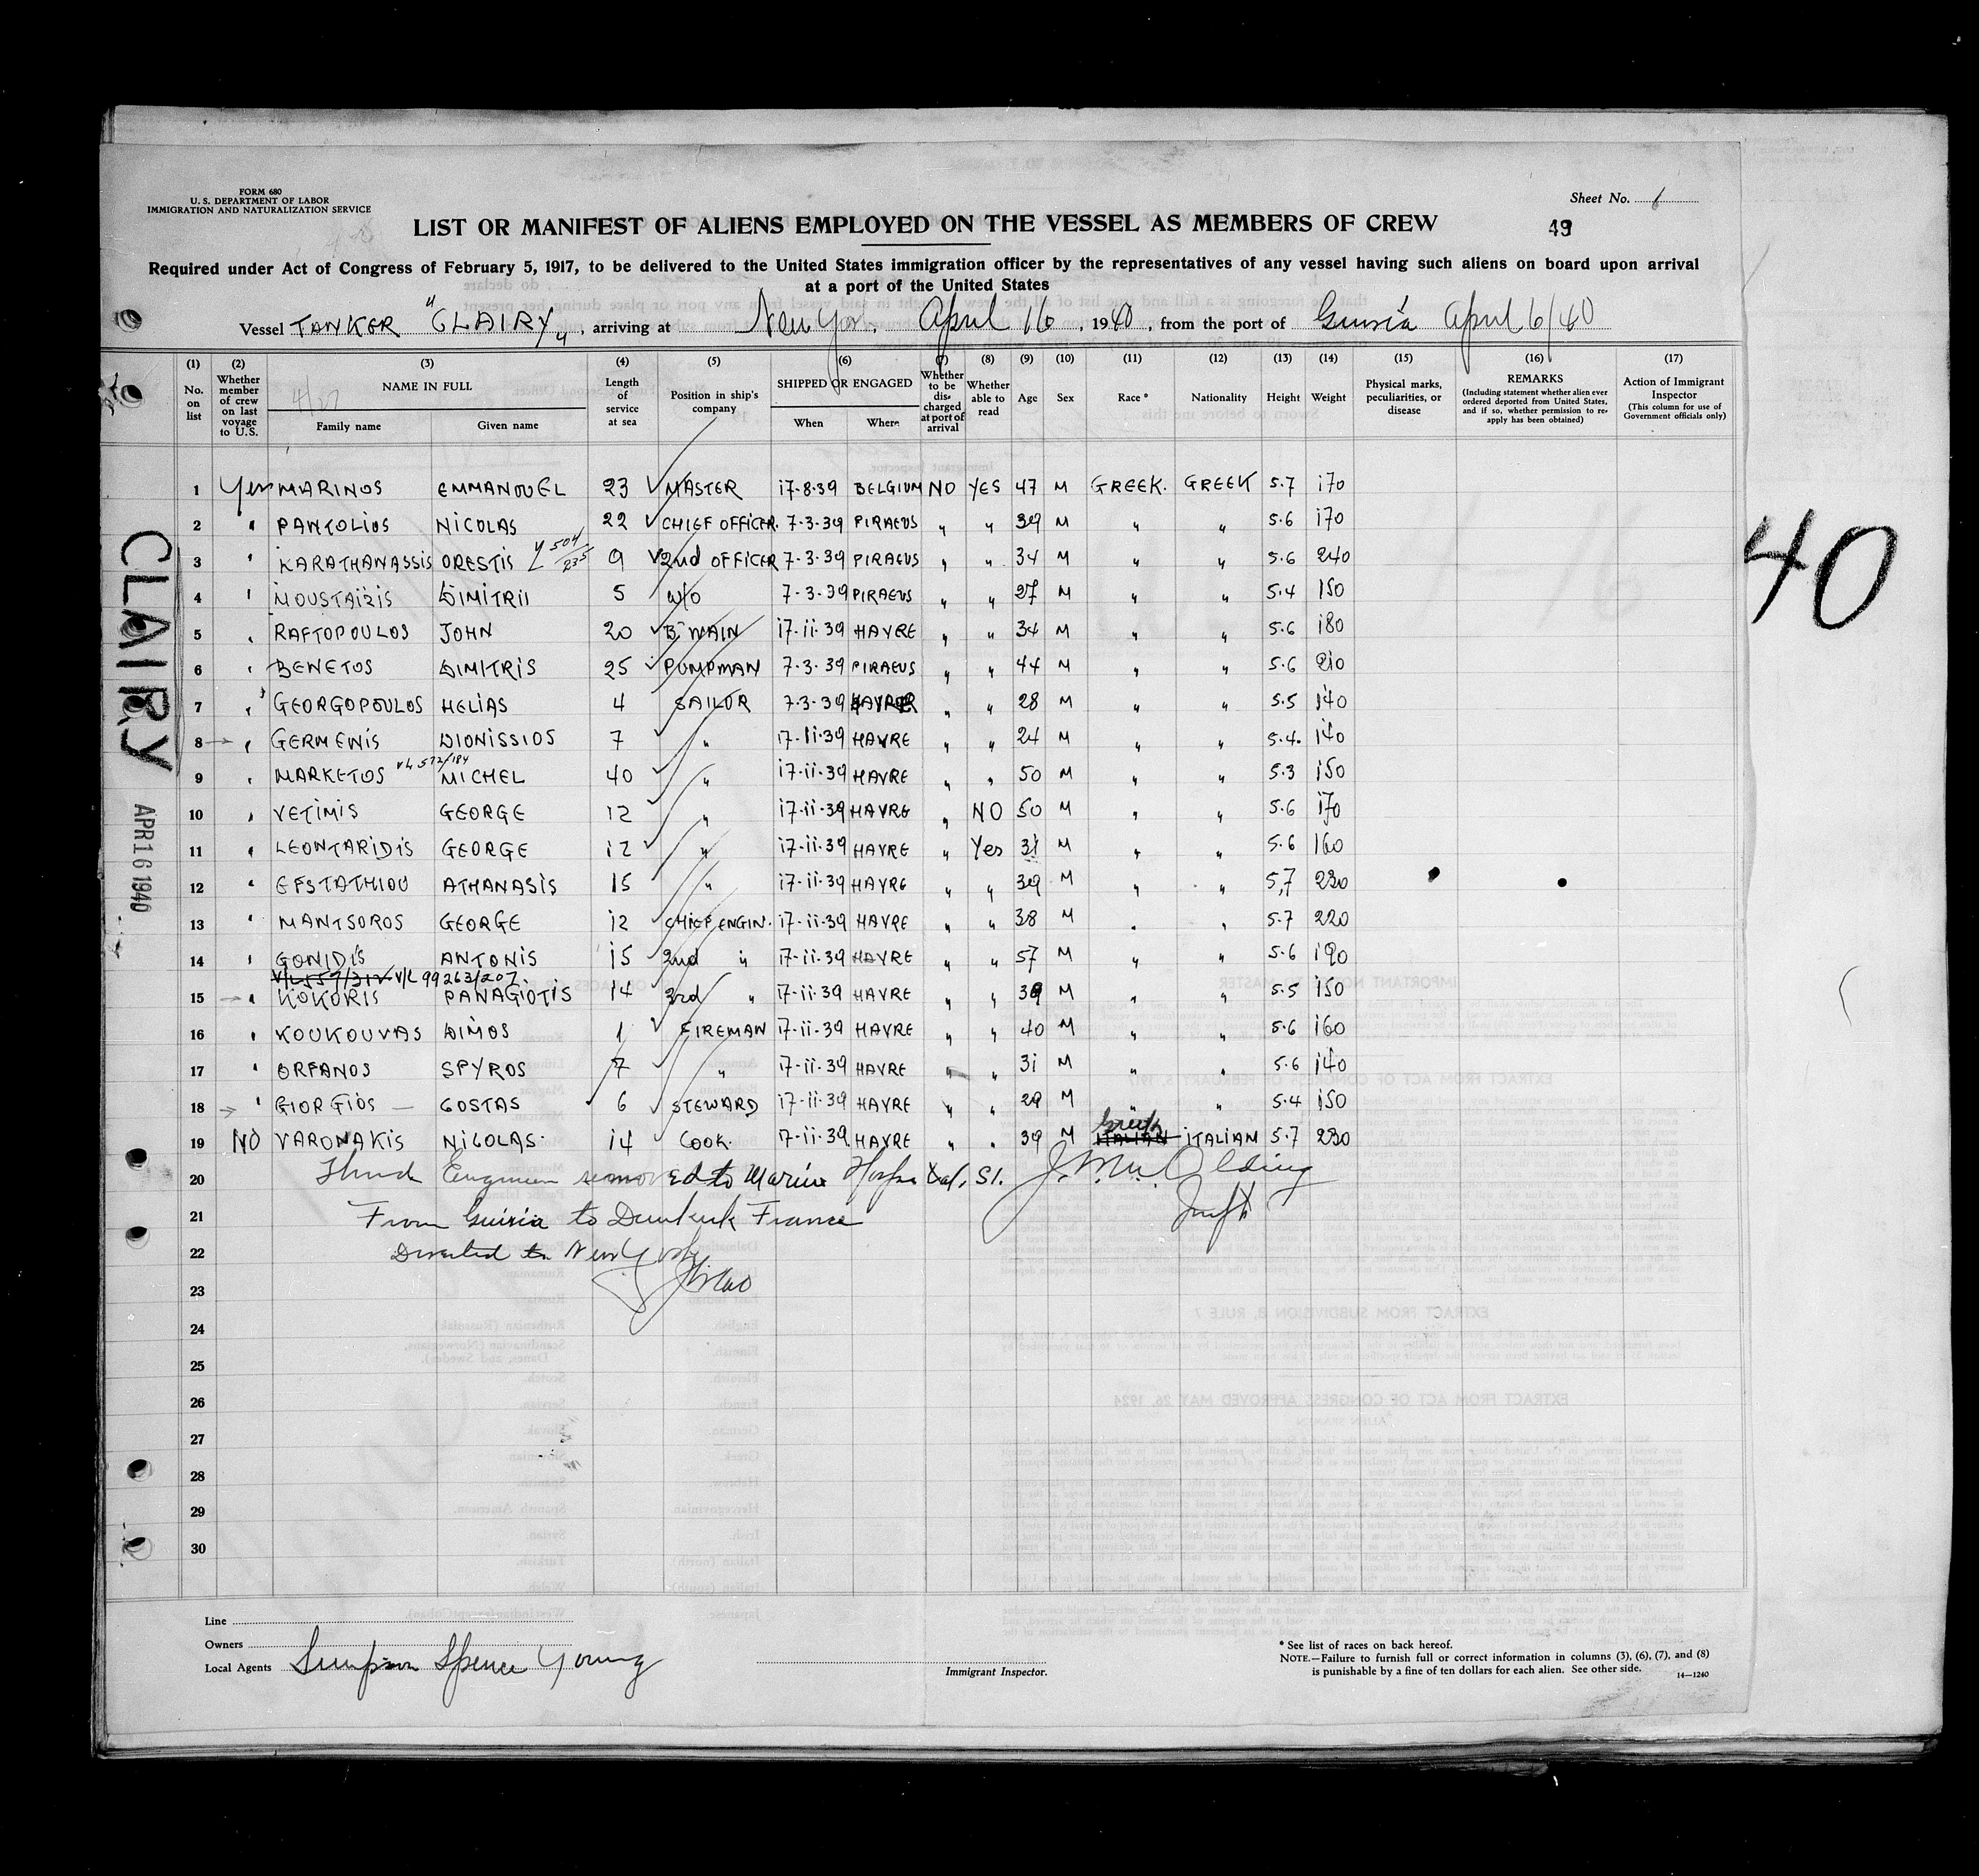 FORM 680
U. S. DEPARTMENT OF LABOR
IMMIGRATION AND NATURALIZATION SERVICE
Sheet No. 1
LIST OR MANIFEST OF ALIENS EMPLOYED ON THE VESSEL AS MEMBERS OF CREW
49
Required under Act of Congress of February 5, 1917, to be delivered to the United States immigration officer by the representatives of any vessel having such aliens on board upon arrival
at a port of the United States
Vessel TANKER "CLAIRY", arriving at New York, April 16, 1940, from the port of Guiria April 6/40
(1) No. on list
(2) Whether member of crew on last voyage to U.S.
(3) NAME IN FULL Family name Given name
(4) Length of service at sea
(5) Position in ship's company
(6) SHIPPED OR ENGAGED When Where
(7) Whether to be discharged at port of arrival
(8) Whether able to read
(9) Age
(10) Sex
(11) Race *
(12) Nationality
(13) Height
(14) Weight
(15) Physical marks, peculiarities, or disease
(16) REMARKS (Including statement whether alien ever ordered deported from United States, and if so, whether permission to reapply has been obtained)
(17) Action of Immigrant Inspector (This column for use of Government officials only)
1 Yes MARINOS EMMANOUEL 23 MASTER 17-8-39 BELGIUM NO YES 47 M GREEK. GREEK 5.7 170
2 " PANTOLIOS NICOLAS 22 CHIEF OFFICER. 7-3-39 PIRAEUS " " 39 M " " 5.6 170
3 " KARATHANASSIS ORESTIS 504/235 9 2nd OFFICER 7-3-39 PIRAEUS " " 34 M " " 5.6 240
4 " MOUSTAIZIS DIMITRII 5 W/O 7-3-39 PIRAEUS " " 27 M " " 5.4 150
5 " RAFTOPOULOS JOHN 20 B'WAIN 17-11-39 HAVRE " " 34 M " " 5.6 180
6 " BENETOS DIMITRIS 25 PUMPMAN 7-3-39 PIRAEUS " " 44 M " " 5.6 210
7 " GEORGOPOULOS HELIAS 4 SAILOR 7-3-39 " " 28 M " " 5.5 140
8 " GERMENIS DIONISSIOS 7 " 17-11-39 HAVRE " " 24 M " " 5.4. 140
9 " MARKETOS V/L 572/184 MICHEL 40 " 17-11-39 HAVRE " " 50 M " " 5.3 150
10 " VETIMIS GEORGE 12 " 17-11-39 HAVRE " NO 50 M " " 5.6 170
11 " LEONTARIDIS GEORGE 12 " 17-11-39 HAVRE " Yes 31 M " " 5.6 160
12 " EFSTATHIOU ATHANASIS 15 " 17-11-39 HAVRE " " 39 M " " 5,7 230
13 " MANTSOROS GEORGE 12 CHIEF ENGIN. 17-11-39 HAVRE " " 38 M " " 5.7 220
14 " GONIDIS ANTONIS 15 2nd " 17-11-39 HAVRE " " 57 M " " 5.6 190
V/L 557/312 V/L 99263/207
15 " KOKORIS PANAGIOTIS 14 3rd " 17-11-39 HAVRE " " 39 M " " 5.5 150
16 " KOUKOUVAS DIMOS 1 FIREMAN 17-11-39 HAVRE " " 40 M " " 5.6 160
17 " ORFANOS SPYROS 7 " 17-11-39 HAVRE " " 31 M " " 5.6 140
18 " GIORGIOS COSTAS 6 STEWARD 17-11-39 HAVRE " " 29 M " " 5.4 150
19 NO VARONAKIS NICOLAS. 14 COOK. 17-11-39 HAVRE " " 39 M Greek ITALIAN ITALIAN 5.7 230
20 Third Engineer removed to Marine Hospital, S.I.
21 From Guiria to Dunkirk France
22 Diverted to New York
23
24
25
26
27
28
29
30
CLAIRY
APR 16 1940
40
Line
Owners
Local Agents Simpson Spence Young
Immigrant Inspector.
* See list of races on back hereof.
NOTE.—Failure to furnish full or correct information in columns (3), (6), (7), and (8)
is punishable by a fine of ten dollars for each alien. See other side.
14—1240